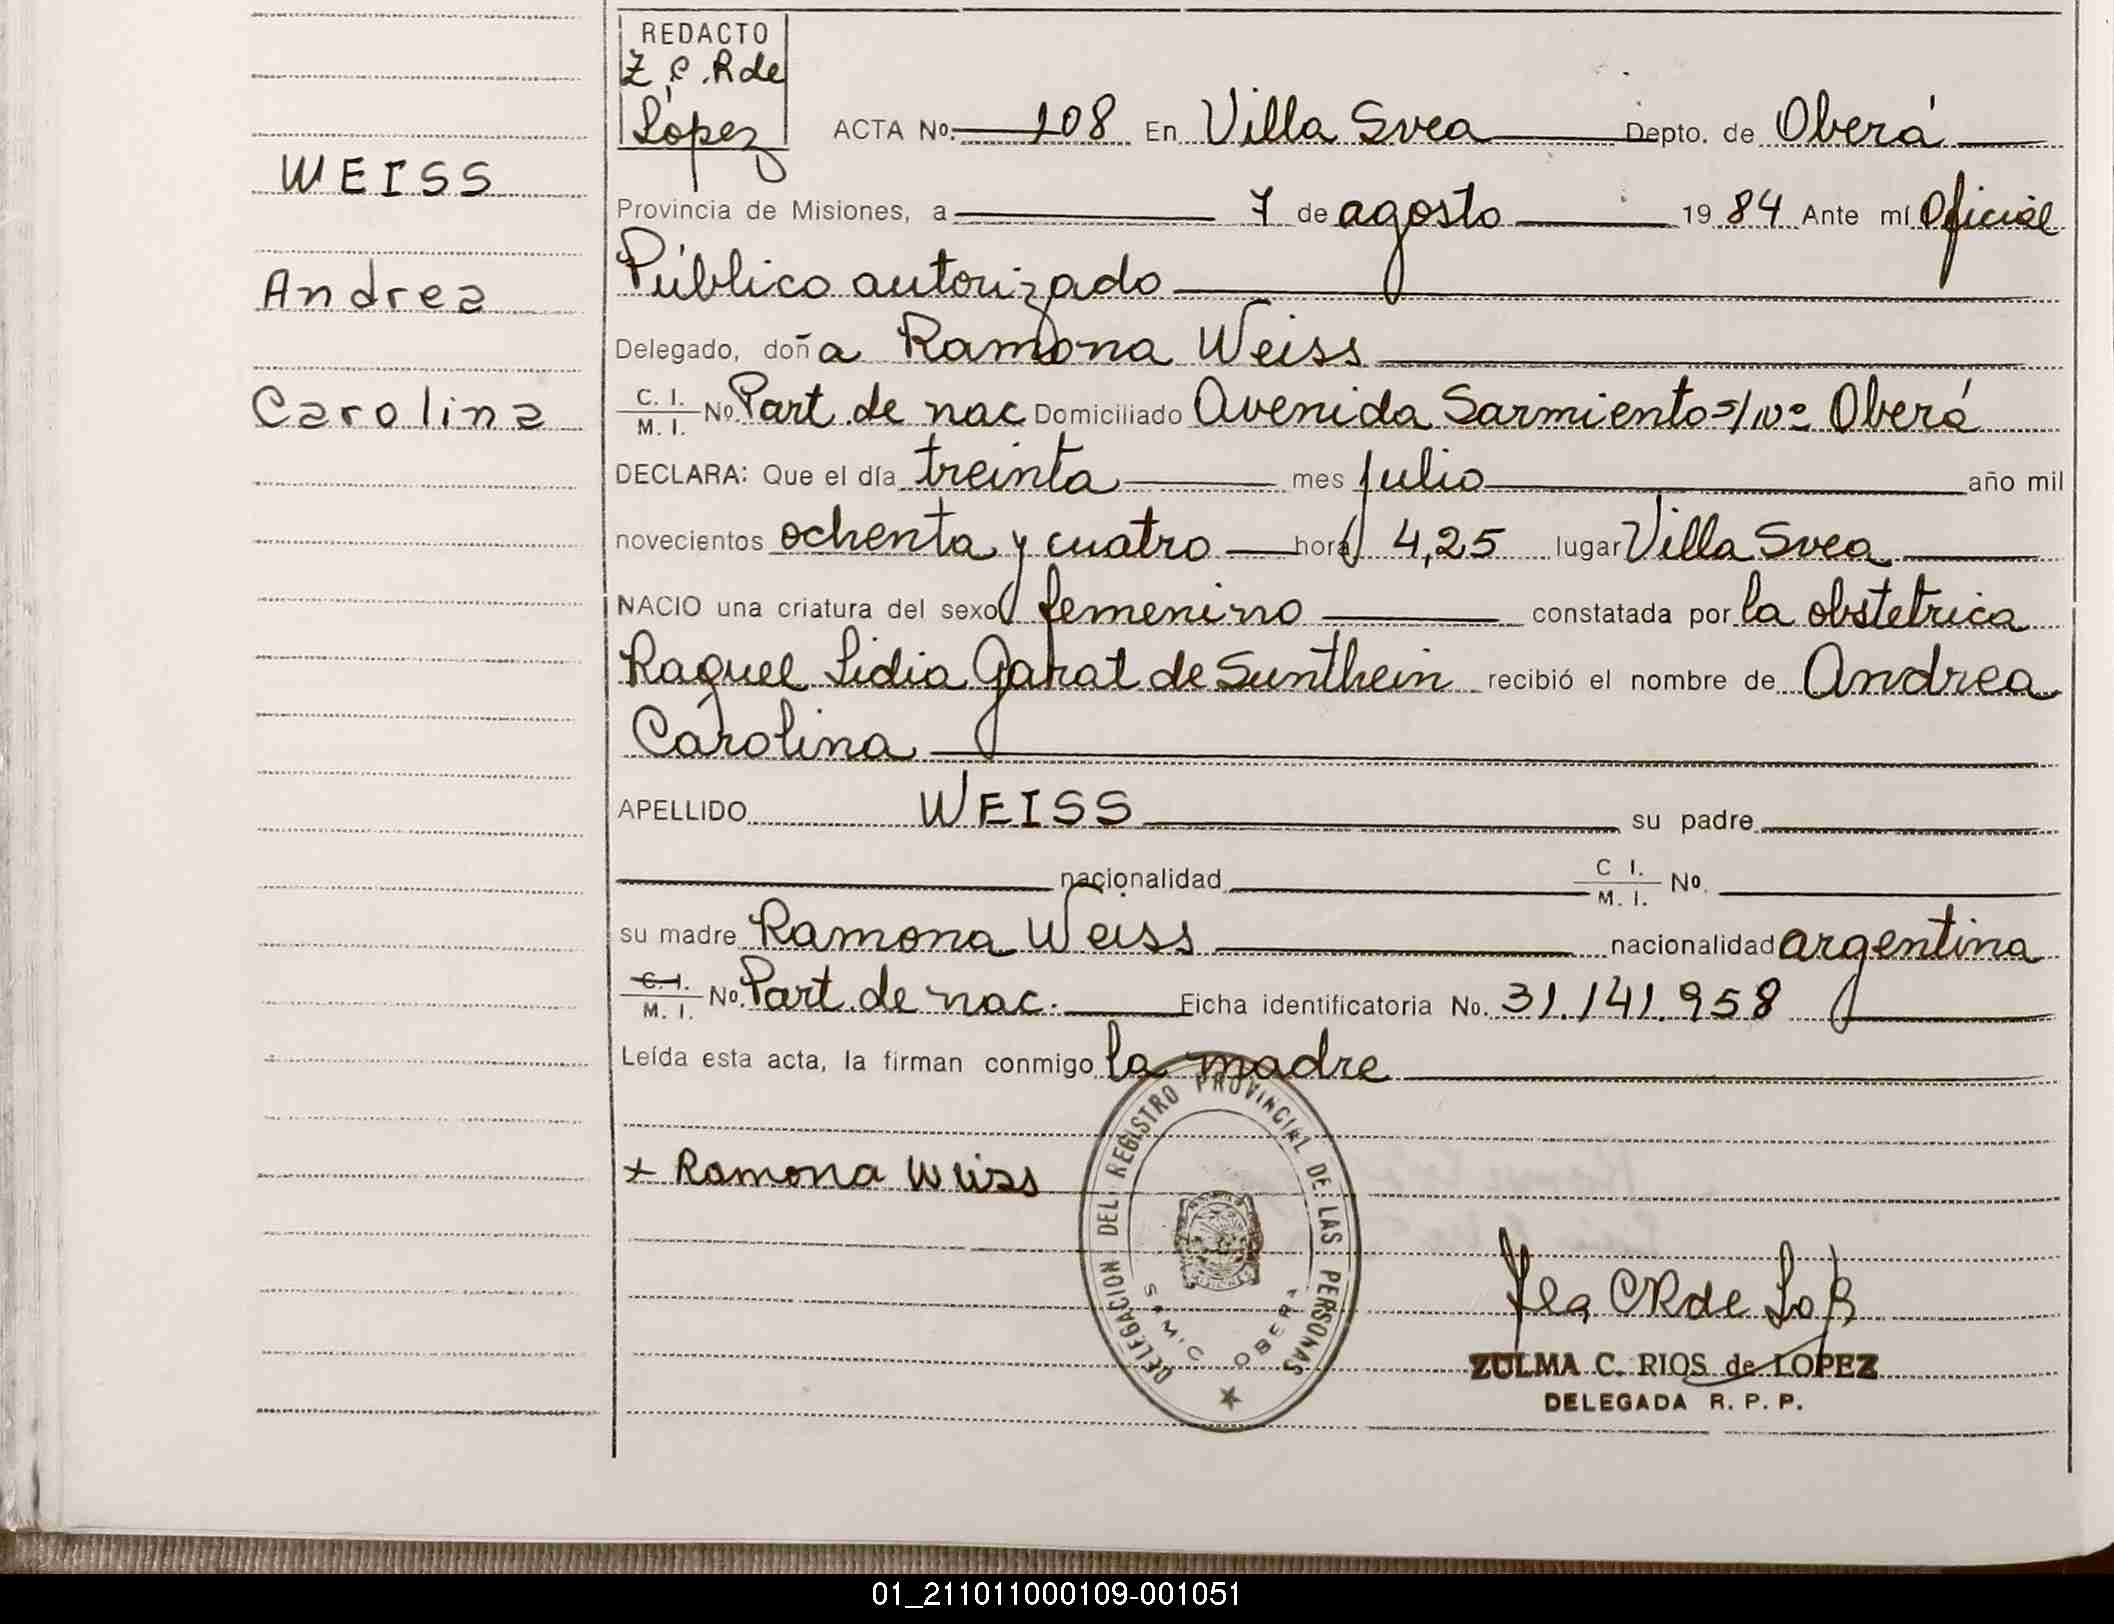 REDACTO
Z. C. R de
López
ACTA No. 108 En Villa Svea Depto. de Oberá
WEISS
Provincia de Misiones, a 7 de agosto 1984 Ante mí Oficial
Público autorizado
Andrea
Delegado, doña Ramona Weiss
Carolina
C. I. M. I. No. Part. de nac Domiciliado Avenida Sarmiento s/nº Oberá
DECLARA: Que el día treinta mes julio año mil
novecientos ochenta y cuatro hora 4,25 lugar Villa Svea
NACIO una criatura del sexo femenino constatada por la obstetrica
Raquel Lidia Garat de Sunthein recibió el nombre de Andrea
Carolina
APELLIDO WEISS su padre
nacionalidad C I. M. I. No.
su madre Ramona Weiss nacionalidad argentina
C. I. M. I. No. Part. de nac. Ficha identificatoria No. 31.141.958
Leída esta acta, la firman conmigo la madre
+ Ramona Weiss
DELEGACION DEL REGISTRO PROVINCIAL DE LAS PERSONAS
SAMIC OBERA
ZULMA C. RIOS de LOPEZ
DELEGADA R. P. P.
01_211011000109-001051